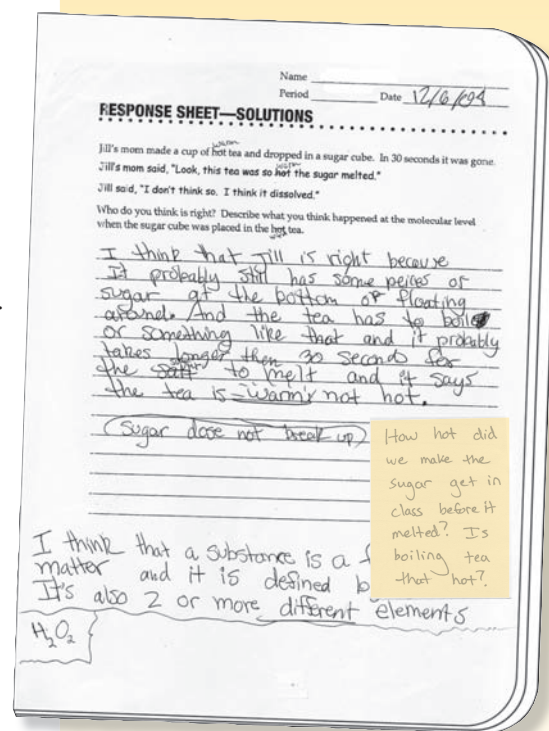 Name
Period Date 12/6/04
RESPONSE SHEET—SOLUTIONS
warm
Jill's mom made a cup of hot tea and dropped in a sugar cube. In 30 seconds it was gone.
warm
Jill's mom said, "Look, this tea was so hot the sugar melted."
Jill said, "I don't think so. I think it dissolved."
Who do you think is right? Describe what you think happened at the molecular level
when the sugar cube was placed in the hot tea.
I think that Jill is right because
It probably still has some peices of
sugar at the bottom or floating
around. And the tea has to boil
or something like that and it probably
takes longer then 30 second for
the salt to melt and it says
the tea is "warm" not hot.
(Sugar dose not break up)
How hot did
we make the
sugar get in
class before it
melted? Is
boiling tea
that hot?
I think that a substance is a
matter and it is defined b
It's also 2 or more different elements
H₂O₂